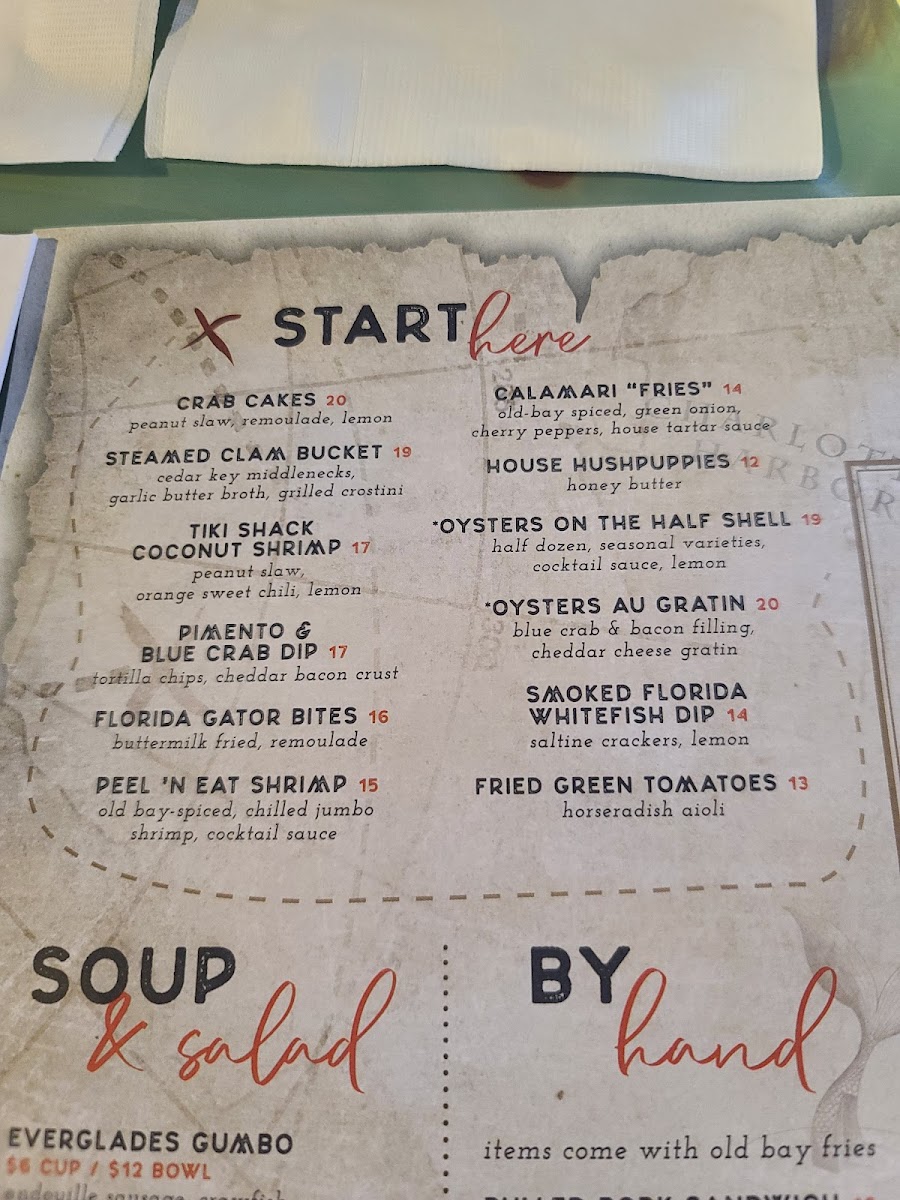 X START here
CRAB CAKES 20
peanut slaw, remoulade, lemon
STEAMED CLAM BUCKET 19
cedar key middlenecks,
garlic butter broth, grilled crostini
TIKI SHACK
COCONUT SHRIMP 17
peanut slaw,
orange sweet chili, lemon
PIMENTO &
BLUE CRAB DIP 17
tortilla chips, cheddar bacon crust
FLORIDA GATOR BITES 16
buttermilk fried, remoulade
PEEL 'N EAT SHRIMP 15
old bay-spiced, chilled jumbo
shrimp, cocktail sauce
CALAMARI "FRIES" 14
old-bay spiced, green onion,
cherry peppers, house tartar sauce
HOUSE HUSHPUPPIES 12
honey butter
*OYSTERS ON THE HALF SHELL 19
half dozen, seasonal varieties,
cocktail sauce, lemon
*OYSTERS AU GRATIN 20
blue crab & bacon filling,
cheddar cheese gratin
SMOKED FLORIDA
WHITEFISH DIP 14
saltine crackers, lemon
FRIED GREEN TOMATOES 13
horseradish aioli
SOUP
& salad
EVERGLADES GUMBO
$6 CUP / $12 BOWL
BY
hand
items come with old bay fries
PULLED PORK SANDWICH